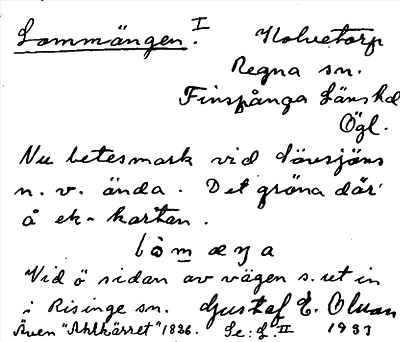 Lommängen. I Holvetorp
Regna sn.
Finspånga Länshd
Ögl.
Nu betesmark vid Tåresjöns
n. v. ända. Det gröna där
å ek-kartan.
lòmæŋa
Vid ö sidan av vägen s. ut in
i Risinge sn. Gustaf E. Olsson
Även "Ahlkärret" 1836. Se: L. II 1933